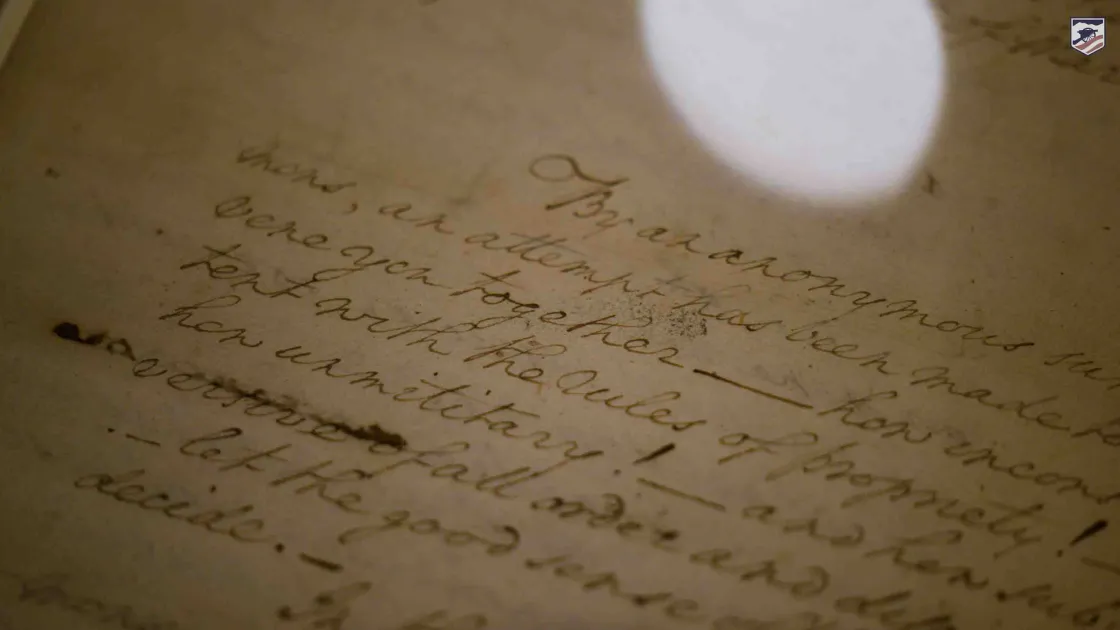 By an anonymous su
mons, an attempt has been made
vene you together — how incons
tent with the rules of propriety! —
how unmilitary! — and how sub
versive of all order and dis
— let the good sense
decide. — In the